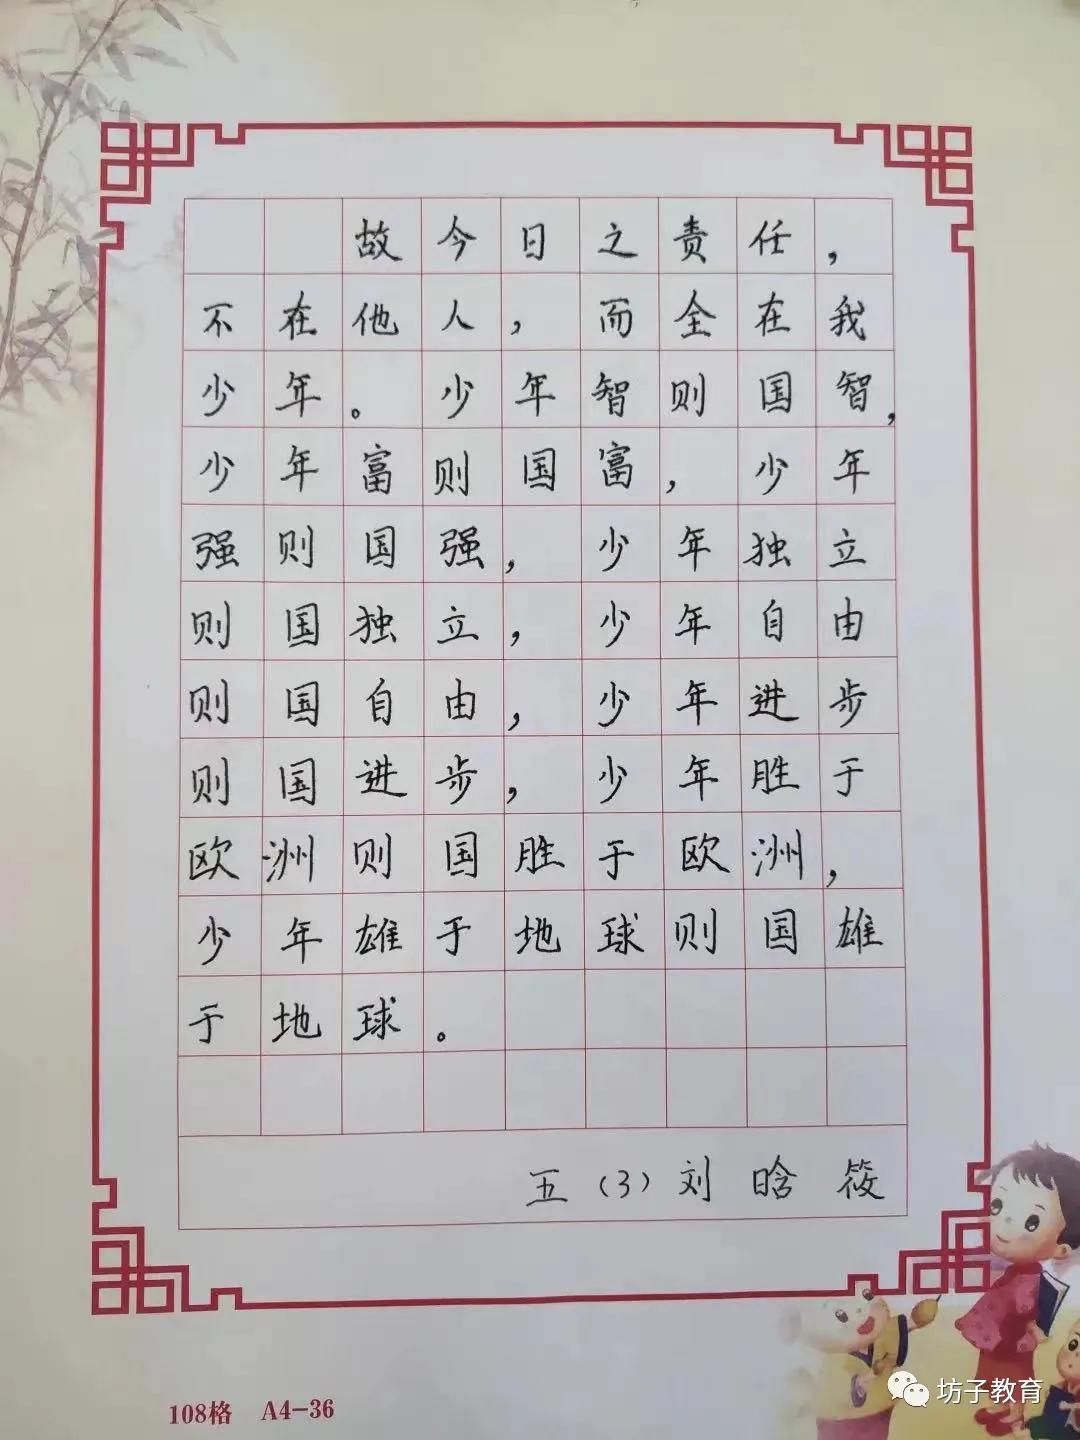 故今日之责任，
不在他人，而全在我
少年。少年智则国智，
少年富则国富，少年
强则国强，少年独立
则国独立，少年自由
则国自由，少年进步
则国进步，少年胜于
欧洲则国胜于欧洲，
少年雄于地球则国雄
于地球。
五（3）刘晗筱
108格 A4-36
坊子教育